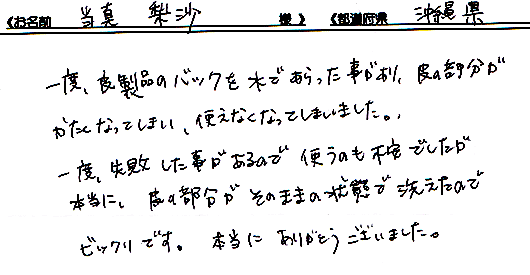 《お名前 当真 梨沙 様 》 《都道府県 沖縄県
一度、皮製品のバックを水であらった事があり、皮の部分が
かたくなってしまい、使えなくなってしまいました。
一度、失敗した事があるので使うのも不安でしたが
本当に、皮の部分がそのままの状態で洗えたので
ビックリです。 本当にありがとうございました。